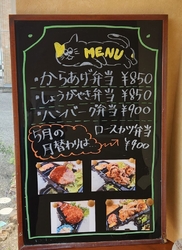 MENU
・からあげ弁当 ¥850
・しょうがやき弁当 ¥850
・ハンバーグ弁当 ¥900
5月の
日替わりは
ロースカツ弁当
¥900